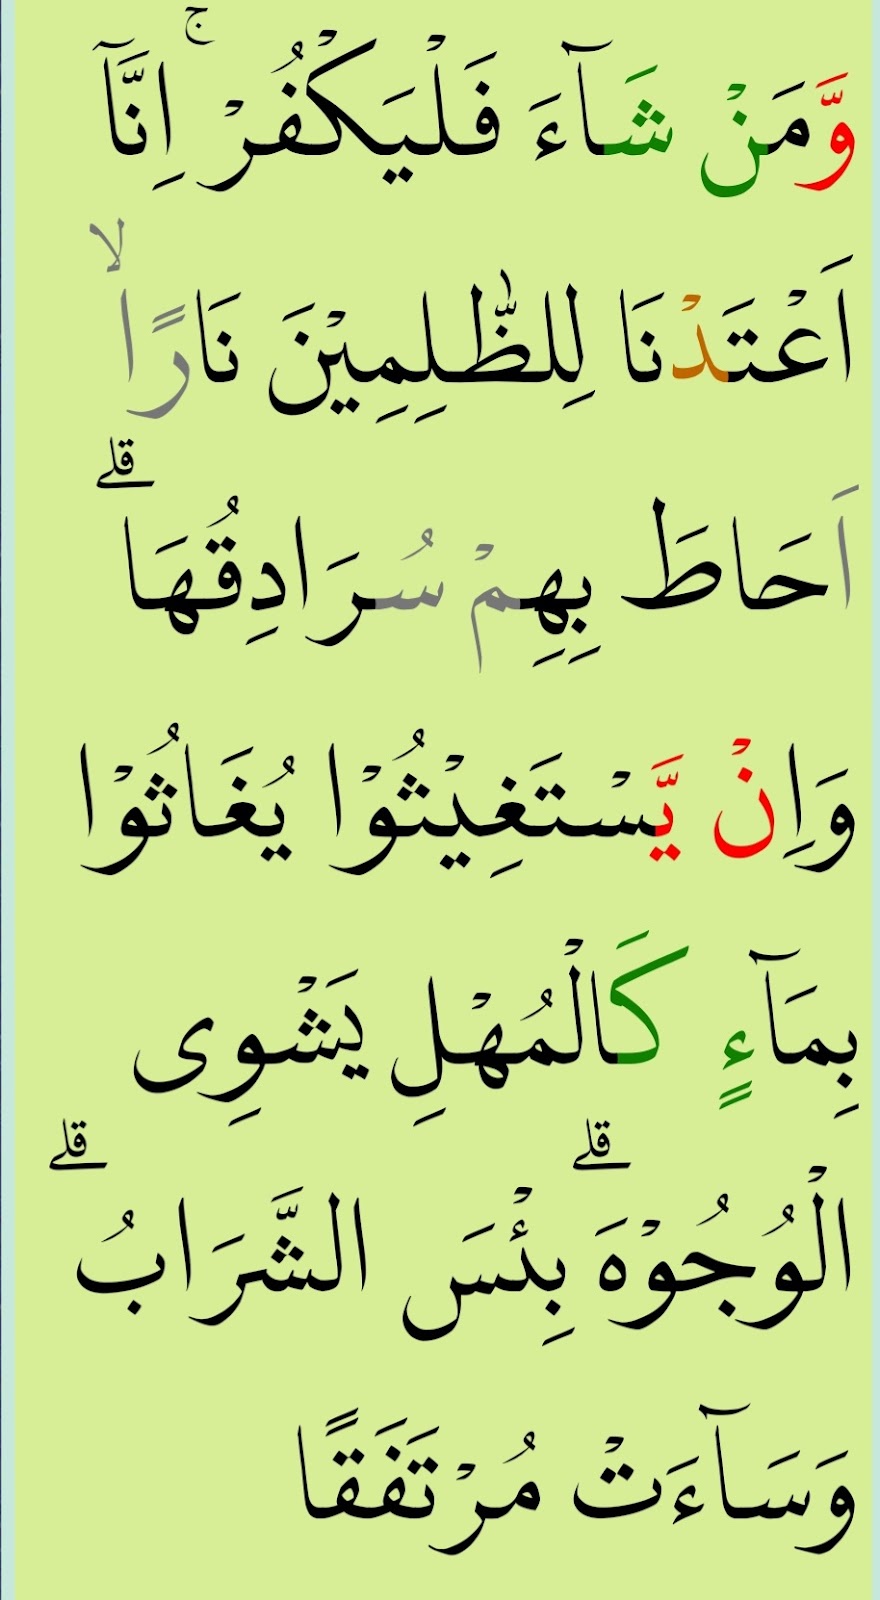 وَّمَنْ شَآءَ فَلْيَكْفُرْ ۚ اِنَّاۤ
اَعْتَدْنَا لِلظّٰلِمِيْنَ نَارًا ۙ
اَحَاطَ بِهِمْ سُرَادِقُهَا ؕۗ
وَاِنْ يَّسْتَغِيْثُوْا يُغَاثُوْا
بِمَآءٍ كَالْمُهْلِ يَشْوِى
الْوُجُوْهَ ۗ بِئْسَ الشَّرَابُ ۗ
وَسَآءَتْ مُرْتَفَقًا